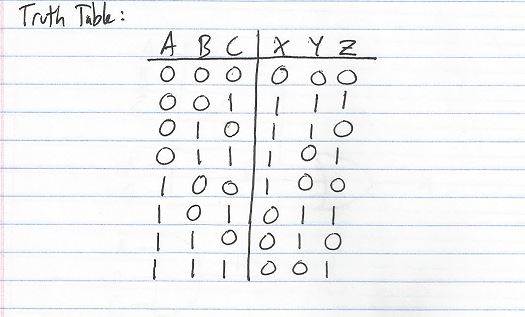 Truth Table:
A B C X Y Z
0 0 0 0 0 0
0 0 1 1 1 1
0 1 0 1 1 0
0 1 1 1 0 1
1 0 0 1 0 0
1 0 1 0 1 1
1 1 0 0 1 0
1 1 1 0 0 1